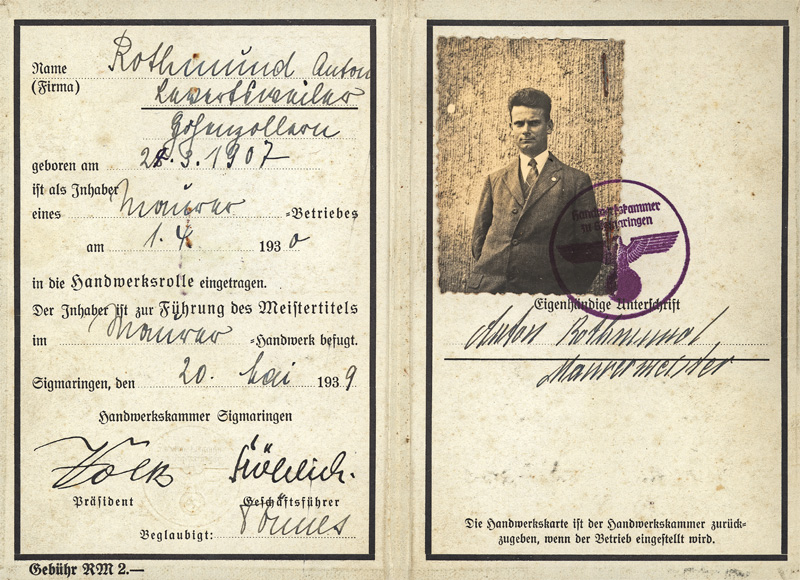 Name Rothmund Anton
(Firma) Levertsweiler
Hohenzollern
geboren am 28.3.1907
ist als Inhaber
eines Maurer =Betriebes
am 1. 4. 1930
in die Handwerksrolle eingetragen.
Der Inhaber ist zur Führung des Meistertitels
im Maurer =Handwerk befugt.
Sigmaringen, den 20. Mai 1939
Handwerkskammer Sigmaringen
Volk Fröhlich.
Präsident Geschäftsführer
Beglaubigt: Tönnes
Gebühr RM 2.—
Handwerkskammer
zu Sigmaringen
Eigenhändige Unterschrift
Anton Rothmund
Maurermeister
Die Handwerkskarte ist der Handwerkskammer zurück-
zugeben, wenn der Betrieb eingestellt wird.